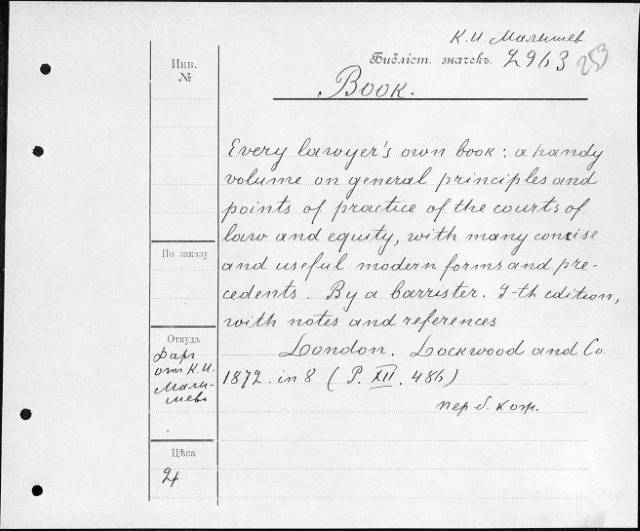 К.И. Малышев
Инв.
№
Библіот. значекъ. 2963
253
Book.
Every lawyer's own book: a handy
volume on general principles and
points of practice of the courts of
law and equity, with many concise
and useful modern forms and pre-
cedents. By a barrister. 9-th edition,
with notes and references
London. Lockwood and Co.
1872. in 8 (P. XII. 486)
пер. б. кож.
По заказу
Откуда
Даръ
отъ К.И.
Малы-
шева
Цѣна